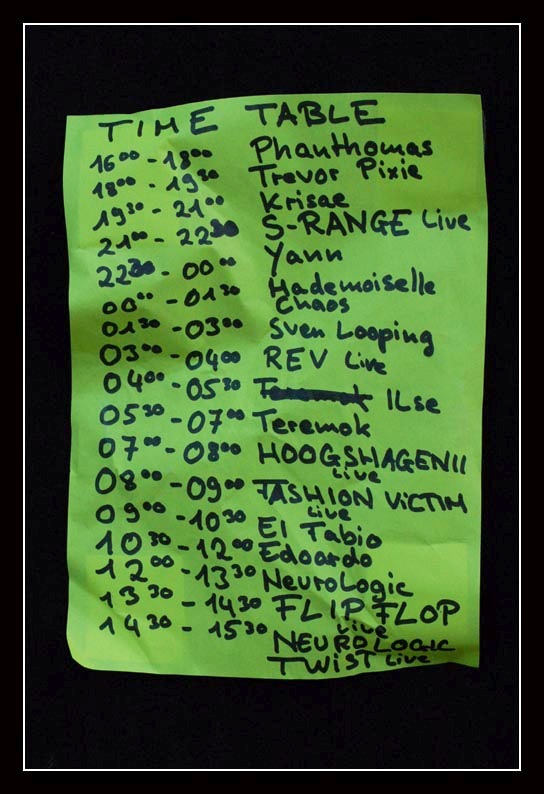 TIME TABLE
16⁰⁰ - 18⁰⁰ Phanthomas
18⁰⁰ - 19³⁰ Trevor Pixie
19³⁰ - 21⁰⁰ Krisae
21⁰⁰ - 22³⁰ S-RANGE Live
22³⁰ - 00⁰⁰ Yann
00⁰⁰ - 01³⁰ Mademoiselle
Chaos
01³⁰ - 03⁰⁰ Sven Looping
03⁰⁰ - 04⁰⁰ REV Live
04⁰⁰ - 05³⁰ Teremok ILse
05³⁰ - 07⁰⁰ Teremok
07⁰⁰ - 08⁰⁰ HOOGSHAGENII
Live
08⁰⁰ - 09⁰⁰ FASHION ViCTIM
Live
09⁰⁰ - 10³⁰ El Tabio
10³⁰ - 12⁰⁰ Edoardo
12⁰⁰ - 13³⁰ NeuroLogic
13³⁰ - 14³⁰ FLIP FLOP
Live
14³⁰ - 15³⁰ NEUROLOGIC
TWiST Live